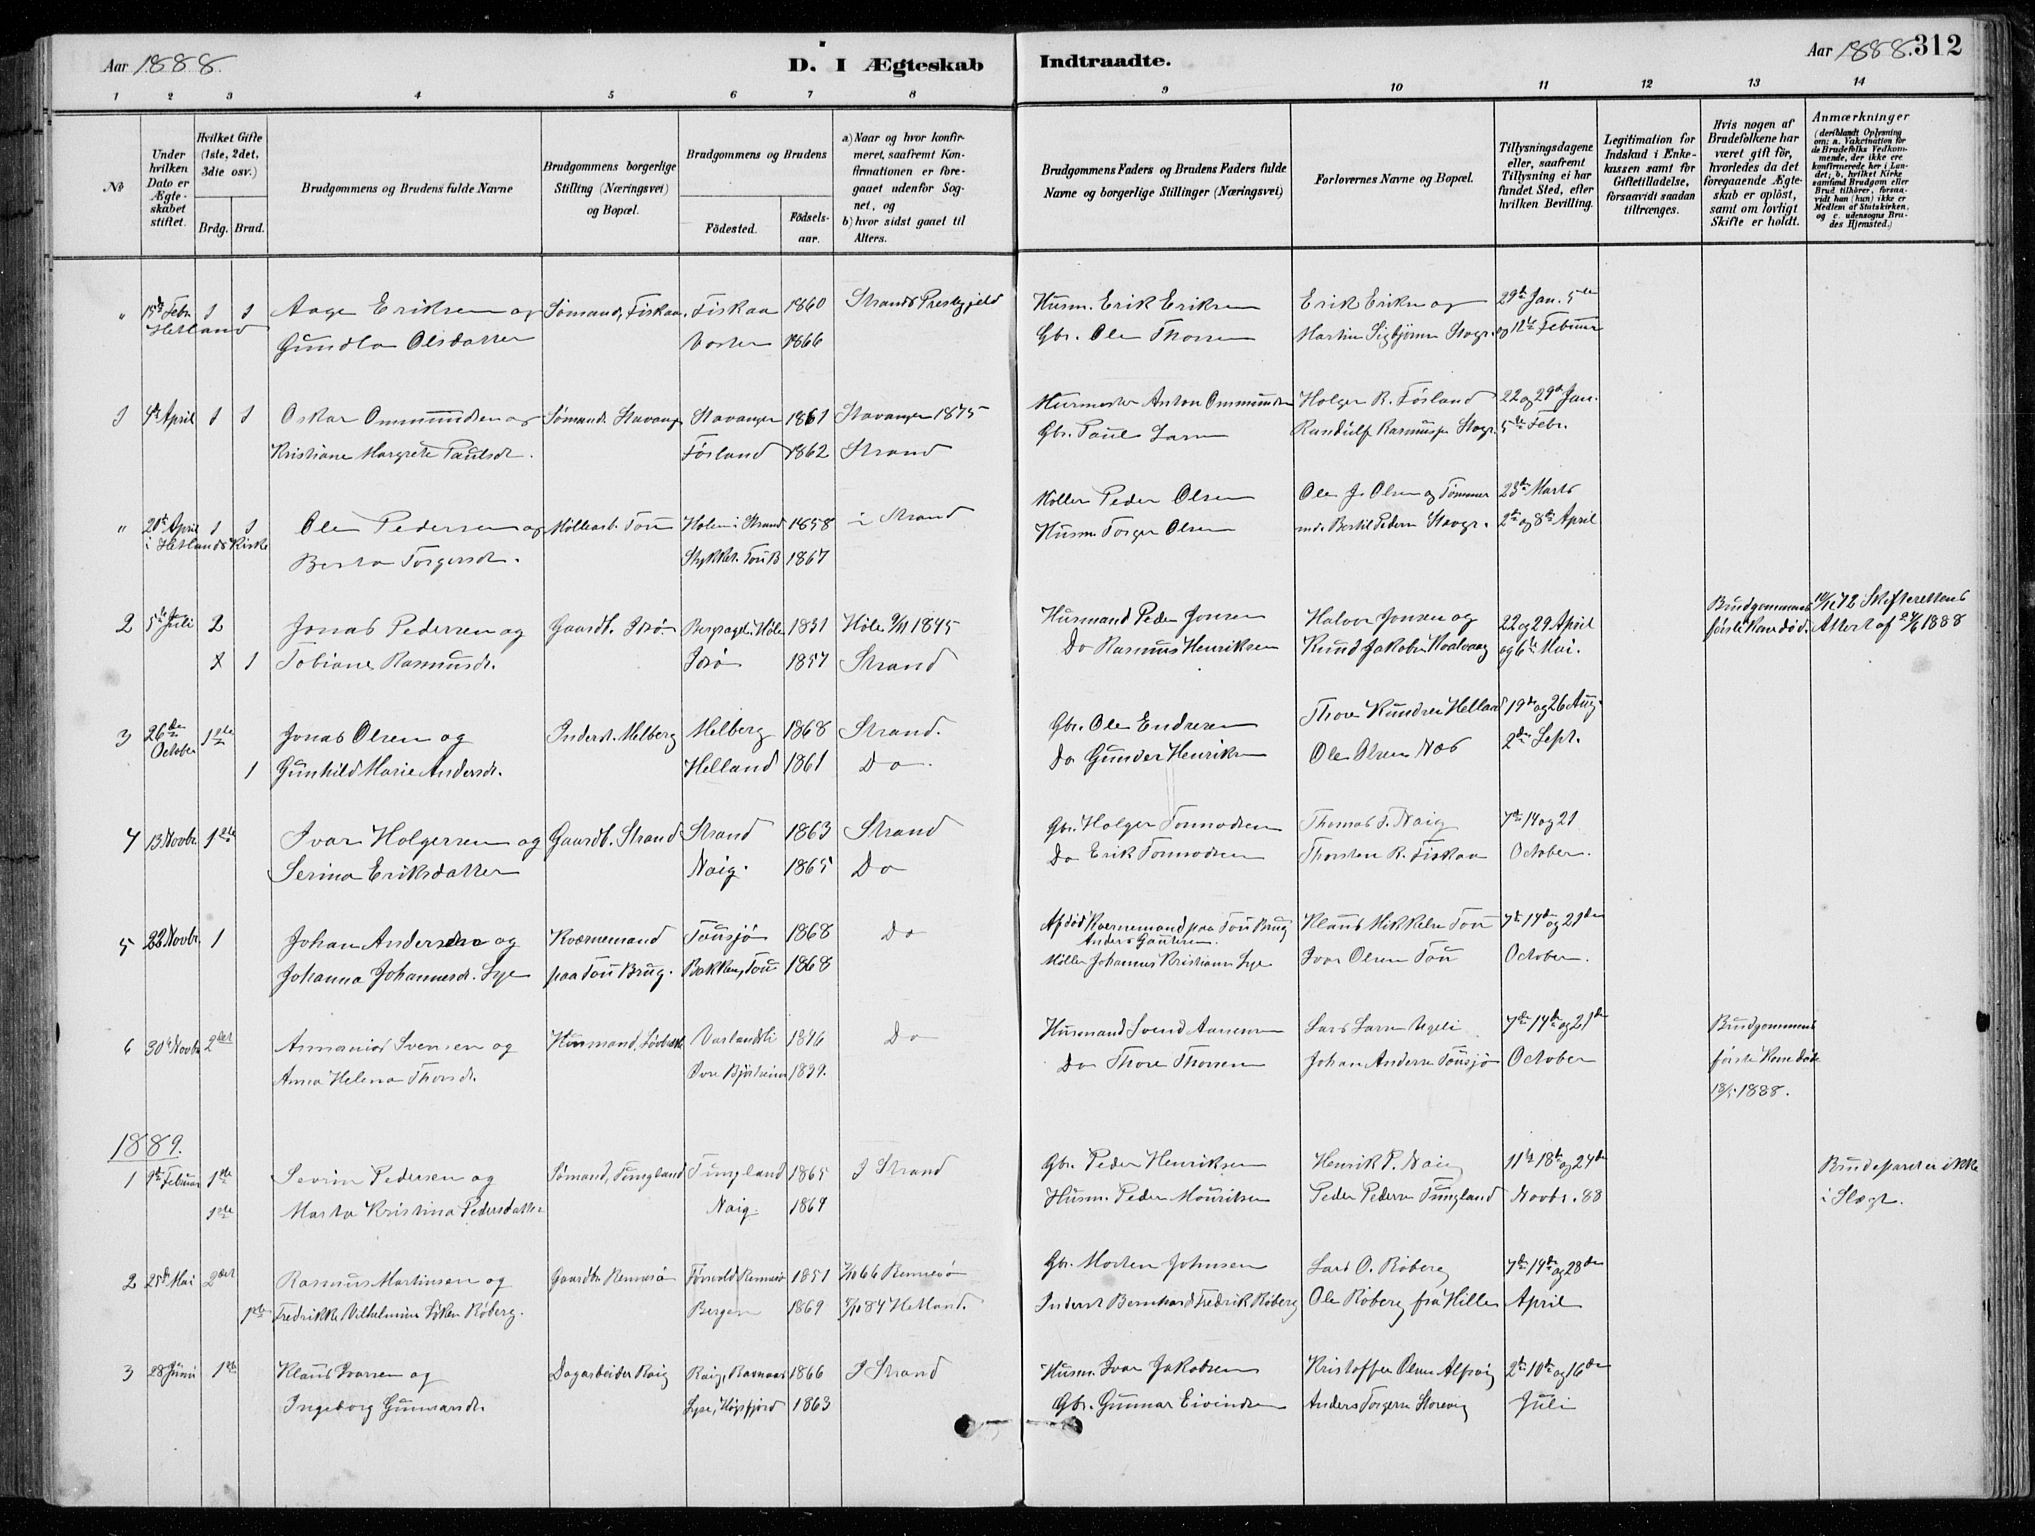 Aar 1888.
D. I Ægteskab
Indtraadte.
Aar 1888. 312
1 2 3 4 5 6 7 8 9 10 11 12 13 14
No
Under hvilken Dato er Ægteskabet stiftet.
Hvilket Gifte (1ste, 2det, 3die osv.)
Brdg. Brud.
Brudgommens og Brudens fulde Navne
Brudgommens borgerlige Stilling (Næringsvei) og Bopæl.
Brudgommens og Brudens
Födested.
Födselsaar.
a) Naar og hvor konfirmeret, saafremt Konfirmationen er foregaaet udenfor Sognet, og
b) hvor sidst gaaet til Alters.
Brudgommens Faders og Brudens Faders fulde Navne og borgerlige Stillinger (Næringsvei)
Forlovernes Navne og Bopæl.
Tillysningsdagene eller, saafremt Tillysning ei har fundet Sted, efter hvilken Bevilling.
Legitimation for Indskud i Enkekassen samt for Giftetilladelse, forsaavidt saadan tiltrænges.
Hvis nogen af Brudefolkene har været gift för, hvorledes da det foregaaende Ægteskab er oplöst, samt om lovligt Skifte er holdt.
Anmærkninger
(deriblandt Oplysning om: a. Vakcination for de Brudefolks Vedkommende, der ikke ere konfirmerede her i Landet; b, hvilket Kirkesamfund Brudgom eller Brud tilhører, forsaavidt han (hun) ikke er Medlem af Statskirken, og c. udensogns Brudes Hjemsted.)
" 15de Febr. 1 1 Aage Eriksen og Sømand, Fiskaa Fiskaa 1860 Strands Prestegjeld Husm. Erik Eriksen Erik Eriksen og 29de Jan. 5te
Hetland Gundla Olsdatter 1866 Gbr. Ole Thorsen og 12te Februar
1 4de April 1 1 Oskar Ommundsen og Sømand. Stavanger Stavanger 1861 Stavanger 1875 Murmester Anton Ommundsen Holger R. Fösland 22 og 29de Jan.
Kristiane Margrete Paulsdr. Fösland 1862 Strand Gbr. Paul Randulf Rasmussen Stvgr. 5te Febr.
" 20de April 1 1 Ole Pedersen og Möllearb. Tou Holen i Strand 1858 i Strand Møller Peder Olsen Ole J. Olsen og Tømmer 25de Marts
i Hetlands Kirke Berta Torgersdr. 1867 Husm. Torger Olsen md. Bertil Pedersen Stavgr. 2de og 8de April
2 5te Juli 2 Jonas Pedersen og Gaardb. Idsø Bergsagel i Höle 1851 Höle 1875 Husmand Peder Jonsen Halvor Jonsen og 22 og 29 April Brudgommens 19/12 72 Skifterettens
1 Tobiane Rasmusdr. Idsø 1857 Strand Do Rasmus Henriksen Knud Jakobsen og 6te Mai. første Kone död Attest af 1888
3 26de October 1ste Jonas Olsen og Inderst. Melberg Melberg 1868 Strand. Gbr. Ole Endresen Thore Knudsen Helland 19de og 26 Aug.
1 Gunhild Marie Andersdr. Helland 1861 Do. Do Gunder Henriksen Ole Olsen Næs 2den Sept.
4 13 Novbr. 1ste Ivar Holgersen og Gaardb. Strand Strand 1863 Strand Gbr. Holger Tonnodsen Thomas T. Naig 7de 14 og 21
Serina Eriksdatter Naig. 1865 Do Do Erik Tonnodsen Thorsten R. Fiskaa October.
5 22 Novbr. 1 Johan Andersen og Kværnemand Tousjö 1868 Do Afdöd Kværnemand paa Tou Brug Klaus Mikkelsen Tou 7de 14de og 21de
Anders Gautesen.
Johanna Johannesdr. Lye paa Tou Brug. Bakken, Tou 1868 Møller Johannes Kristiansen Lye Ivar Olsen Tou October.
6 30te Novbr. 2det Ananias Svensen og Husmand, 1846 Do Husmand Svend Aanensen Lars Larsen 7de 14de og 21de Brudgommens
Anna Helena Thorsdr. 1839. Do Thore Thorsen Johan Andersen Tousjø October første Kone död
18/5 1888.
1889.
1 1ste Severin Pedersen og Sømand, Tungland Tungland 1865 I Strand Gbr. Peder Henriksen Henrik P. Naig 11te 18de og 24de Brudeparret er ikke
1ste Marta Kristina Pedersdatter Naig. 1869 Husm. Peder Mouritsen Peder Pedersen Tungland Novbr. 88 i Slægt.
2 25de Mai 2det Rasmus Martinsen og Gaardbr. Rennesö 1851 66 Rennesø Gbr. Morten Johnsen Lars O. Röberg 7de 14de og 28de
1ste Fredrikke Vilhelmine Löken Röberg. Bergen 1869 84 Hetland. Inderst Bernhard Fredrik Röberg Ole Röberg fra Hille April
3 28 Juni 1ste Klaus Ivarsen og Dagarbeider Raig 1866 I Strand Husm. Ivar Jakobsen Kristoffer Olsen 2de 10de og 16de
Ingeborg Gunnarsdr. Lyse, Högsfjord 1863 Gbr. Gunnar Eivindsen Anders Torgersen Juli